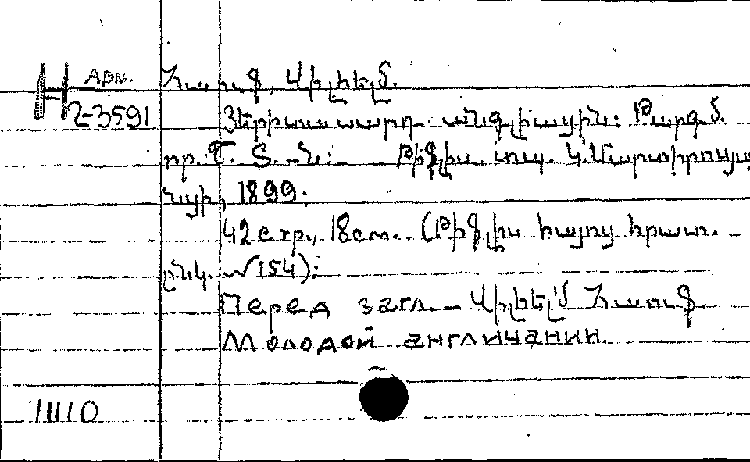 Арм.
Հաուֆ, Վիլհելմ.
Н
2-3591
Յերիտասարդ անգլիացին: Թարգմ.
որ. Տ. Տ. -Ն: Թիֆլիս, տպ. Կ. Մարտիրոսյա
նցի, 1899.
42 стр., 18 см. (Թիֆլիս հայոց հրատ.
ընկ. №154):
Перед загл. - Վիլհելմ Հաուֆ
Молодой англичанин.
11110